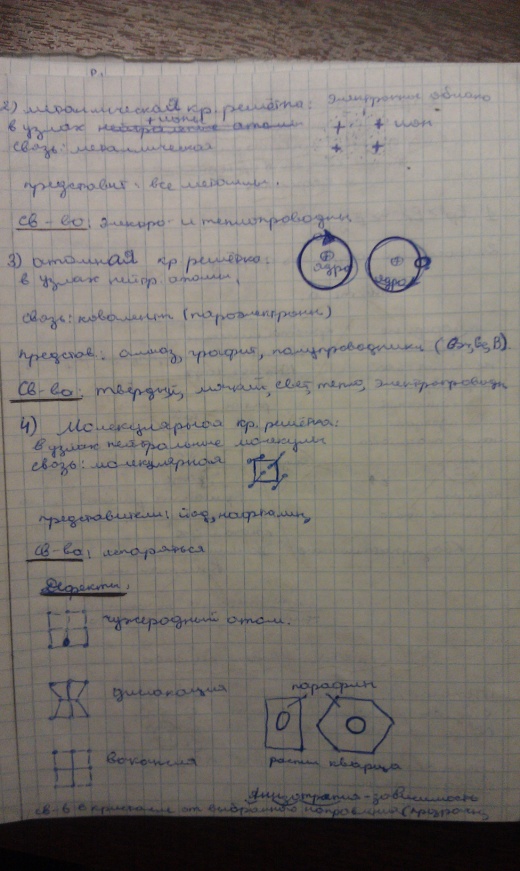 2) металлическая кр. решётка: электронное облако
+ионы
в узлах нейтральные атомы + + ион
связь: металлическая + +
представит: все металлы.
св-во: электро- и теплопроводны
3) атомная кр решётка:
в узлах нейтр. атомы, ядро ядро
связь: ковалент (пароэлектронн)
представ.: алмаз, графит, полупроводники (
св-во: твердый, мягкий, свет, тепло, электропроводн
4) Молекулярная кр. решётка:
в узлах нейтральные молекулы
связь: молекулярная
представители: йод, нафталин,
св-во: испаряться
Дефекты:
чужеродный атом.
дислокация парафин
вакансия пластин кварца
Анизотропия - зависимость
св-в в кристалле от выбранного направления (